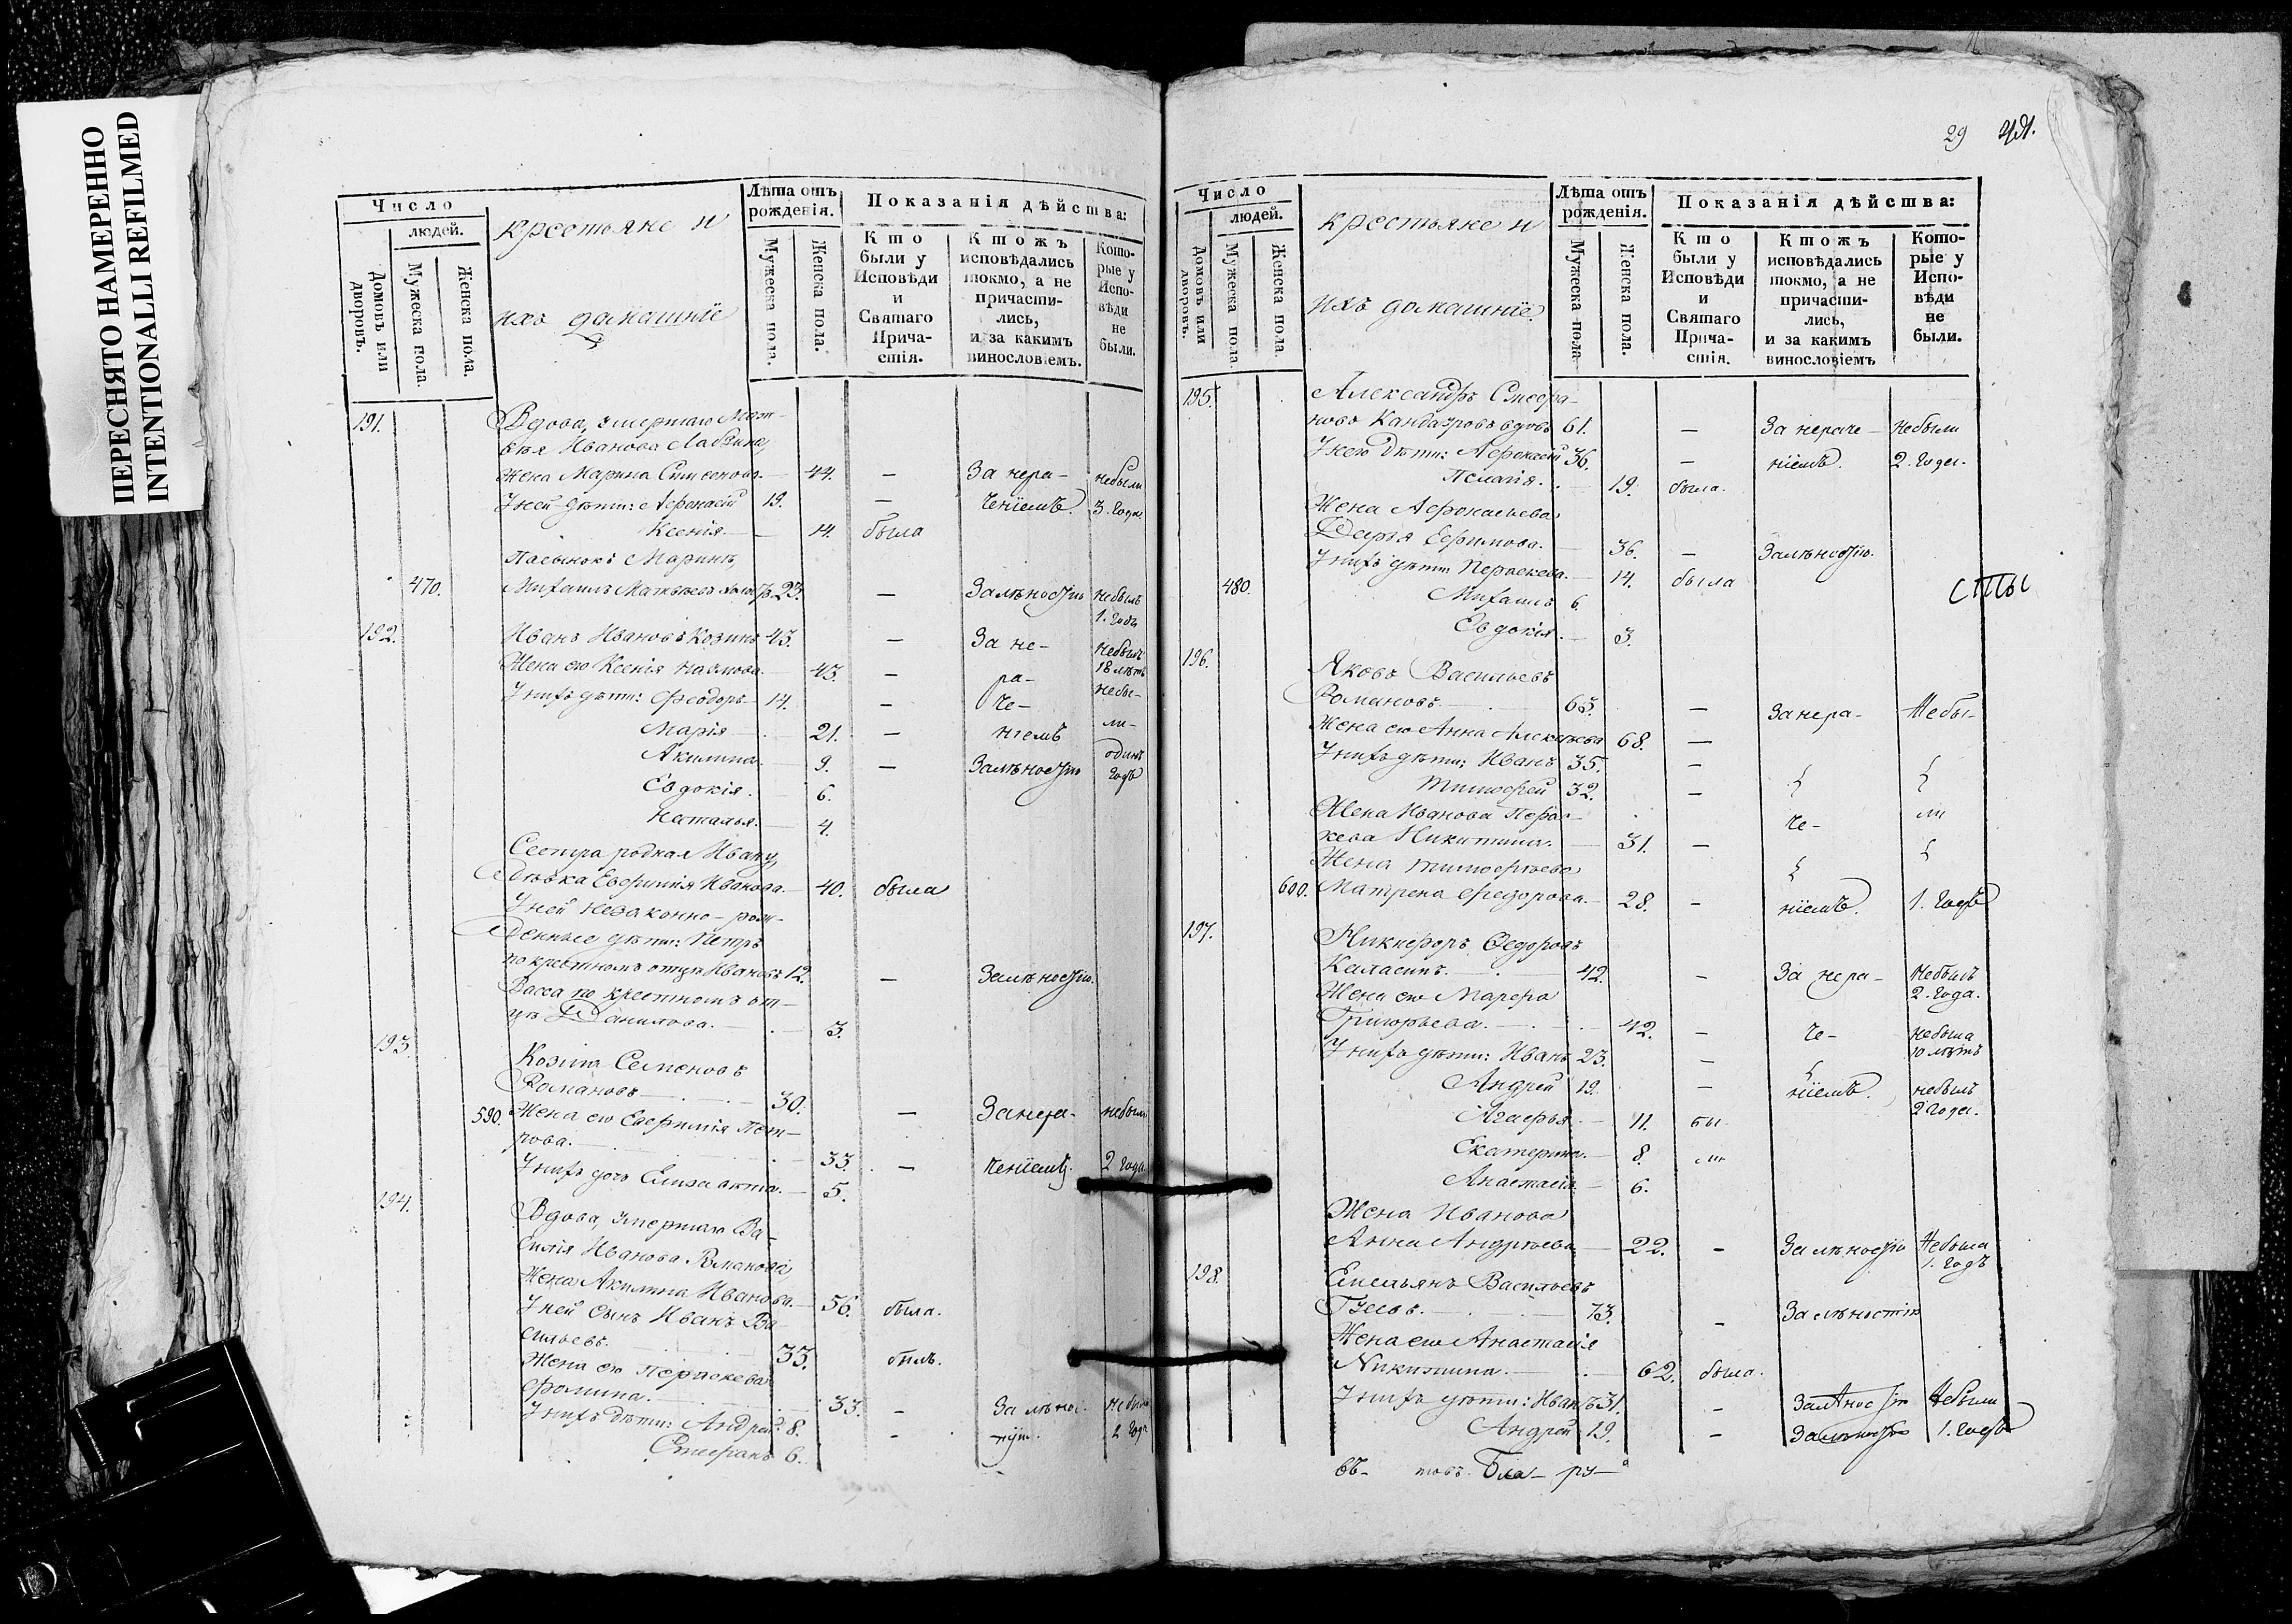 ПЕРЕСНЯТО НАМЕРЕННО
INTENTIONALLI REFILMED
Число
людей.
Домовъ или дворовъ.
Мужеска пола.
Женска пола.
крестьяне и
ихъ домашніе
Лѣта отъ рожденія.
Мужеска пола.
Женска пола.
Показанія дѣйства:
Кто были у Исповѣди и Святаго Причастія.
Ктожъ исповѣдались токмо, а не причастились, и за какимъ винословіемъ.
Которые у Исповѣди не были.
191. Вдова, умершаго Мат-
вѣя Иванова
Жена Марина Симеонова. 44. — За нера- небыли
У ней дѣти: Афонасій 19. — ченіемъ. 3. года
Ксенія. — 14. была
Пасынокъ Марины
470. Михаилъ Матвѣевъ 23. — За лѣностію небылъ
1. годъ
192. Иванъ Ивановъ Козинъ 43. — За не- небылъ
18 лѣтъ
Жена его Ксенія Наумова. 43. — ра- небы-
У нихъ дѣти: Феодоръ — 14. — че-
Марія — 21. — ніемъ ли-
Акилина. 9. — За лѣностію одинъ
годъ
Евдокія. 6.
Наталья. 4.
Сестра родная Ивану,
Дѣвка Евфимія Иванова. — 40. была
У ней незаконно-рож-
денные дѣти: Петръ
по крестномъ отцѣ Ивановъ 12. — За лѣностію.
Васса по крестномъ от-
цѣ Данилова. — 3.
193. Козма Семеновъ
Романовъ — 30. — За нера- небыли
590. Жена его Евфимія Пет-
рова. — 33. — ченіемъ. 2 года
У нихъ дочь Елизавета. — 5.
194. Вдова, умершаго Ва-
силія Иванова Романова
Жена Акилина Иванова. — 56. была.
У ней сынъ Иванъ Ва-
сильевъ. 33. былъ.
Жена его Параскева
Фомина. — 33. — За лѣнос- небыла
У нихъ дѣти: Андрей 8. — 2 года
Стефанъ 6.
29
Число
людей.
Домовъ или дворовъ.
Мужеска пола
Женска пола.
крестьяне и
ихъ домашніе.
Лѣта отъ рожденія.
Мужеска пола
Женска пола.
Показанія дѣйства:
Кто были у Исповѣди и Святаго Причастія.
Ктожъ исповѣдались токмо, а не причастились, и за какимъ винословіемъ
Которые у Исповѣди не были.
195. Александръ Стефа-
новъ Кандауровъ вдовъ 61. — За нераче- небыли
У него дѣти: Афонасій 36. — ніемъ. 2. года.
Пелагія. — 19. была.
Жена Афонасьева
Дарья Ефимова. — 36. — За лѣностію.
У нихъ дѣти Параскева. — 14. была
480. Михаилъ 6. сты
Евдокія. — 3.
196. Яковъ Васильевъ
Романовъ. — 63. — За нера- Небы-
Жена его Анна Алексѣева 68. —
У нихъ дѣти: Иванъ 35. —
Тимофей 32. —
Жена Иванова Парас- че- ли
кева Никитина. — 31. —
Жена Тимофѣева
600. Матрена Федорова. — 28. — ніемъ. 1. годъ
197. Никифоръ Федоровъ
Каласинъ. — 42. — За нера- Небылъ
2. года.
Жена его Марфа
Григорьева. — 42. — че- небыла
10 лѣтъ
У нихъ дѣти: Иванъ 23. —
Андрей 19. — ніемъ. небылъ
2 года.
Агафья — 11. бы-
Екатерина. — 8. ли
Анастасія. — 6.
Жена Иванова
Анна Андреева — 22. — За лѣностію Небыла
1. годъ
198. Емельянъ Васильевъ
Гусевъ. — 73. — За лѣностію
Жена его Анастасія
Никитина. — 62. была.
У нихъ дѣти: Иванъ 31. — За лѣностію Небыли
Андрей 19. — За лѣностію 1. годъ
въ- товъ. Бла- ру-